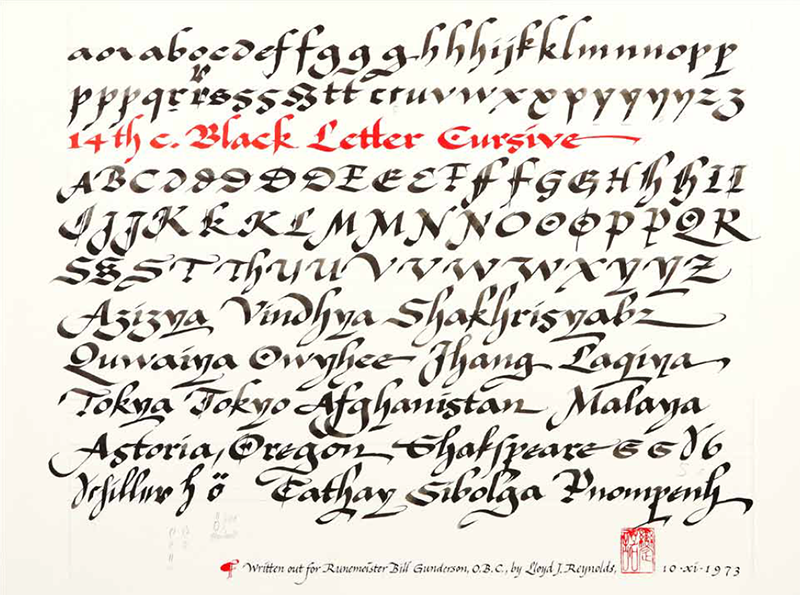 aaabocdefffggghhhijkklmnnopp
pppqrrsssstt cruvwxxpyyyyzz
14th c. Black Letter Cursive
ABCDDDDDEEEFffGGHhhII
IJJKKKLMMNNOOOPPQR
SSSTThUUVVWWXYYZ
Azizya Vindhya Shakhrisyabz
Quwaiya Owyhee Jhang Laqiya
Tokya Tokyo Afghanistan Malaya
Astoria, Oregon Shakspeare G G
Schiller h ö Cathay Sibolga Pnompenh
Written out for Runemeister Bill Gunderson, O.B.C., by Lloyd J. Reynolds, 10·xi·1973